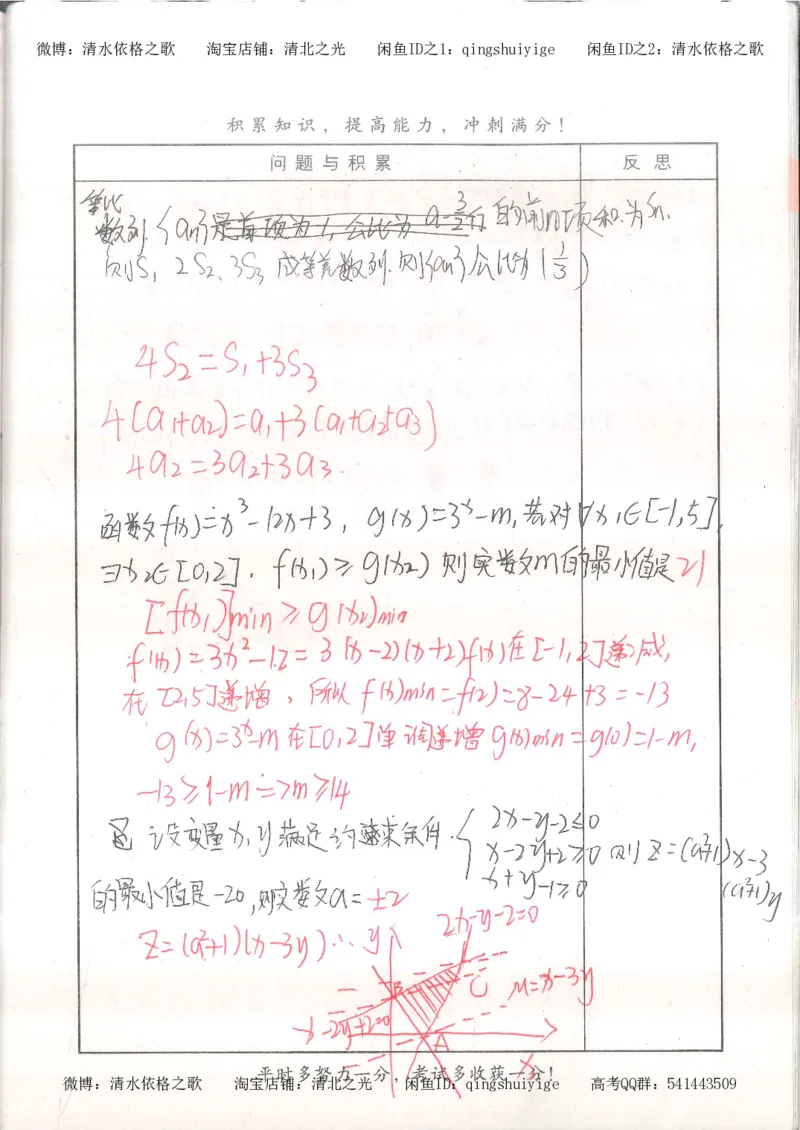 微博：清水依格之歌 淘宝店铺：清北之光 闲鱼ID之1：qingshuiyige 闲鱼ID之2：清水依格之歌
积累知识，提高能力，冲刺满分！
问题与积累 反思
等比
数列{an}是首项为1,公比为a=3/2的 的前n项和为Sn.
则S1 2S2、3S3 成等差数列.则{an}公比为(1/3)
4S2=S1+3S3
4(a1+a2)=a1+3(a1+a2+a3)
4a2=3a2+3a3.
函数f(x)=x³-12x+3，g(x)=3^x-m,若对∀x1∈[-1,5],
∃x2∈[0,2]. f(x1)≥g(x2) 则实数m的最小值是21
[f(x1)]min≥g(x2)min
f'(x)=3x²-12=3(x-2)(x+2)f(x)在[-1,2]递减,
在[2,5]递增，所以f(x)min=f(2)=8-24+3=-13
g(x)=3^x-m在[0,2]单调递增g(x)min=g(0)=1-m,
-13≥1-m=>m≥14
设变量x,y满足约束条件. { 2x-y-2≤0
x-2y+2≥0 则 z=(a²+1)x-3
x+y-1≥0 (a²+1)y
的最小值是-20,则实数a=±2
z=(a²+1)(x-3y)∴ y
2x-y-2=0
B C u=x-3y
x-2y+2=0
A
x
平时多努力一分，考试多收获一分！
微博：清水依格之歌 淘宝店铺：清北之光 闲鱼ID：qingshuiyige 高考QQ群：541443509